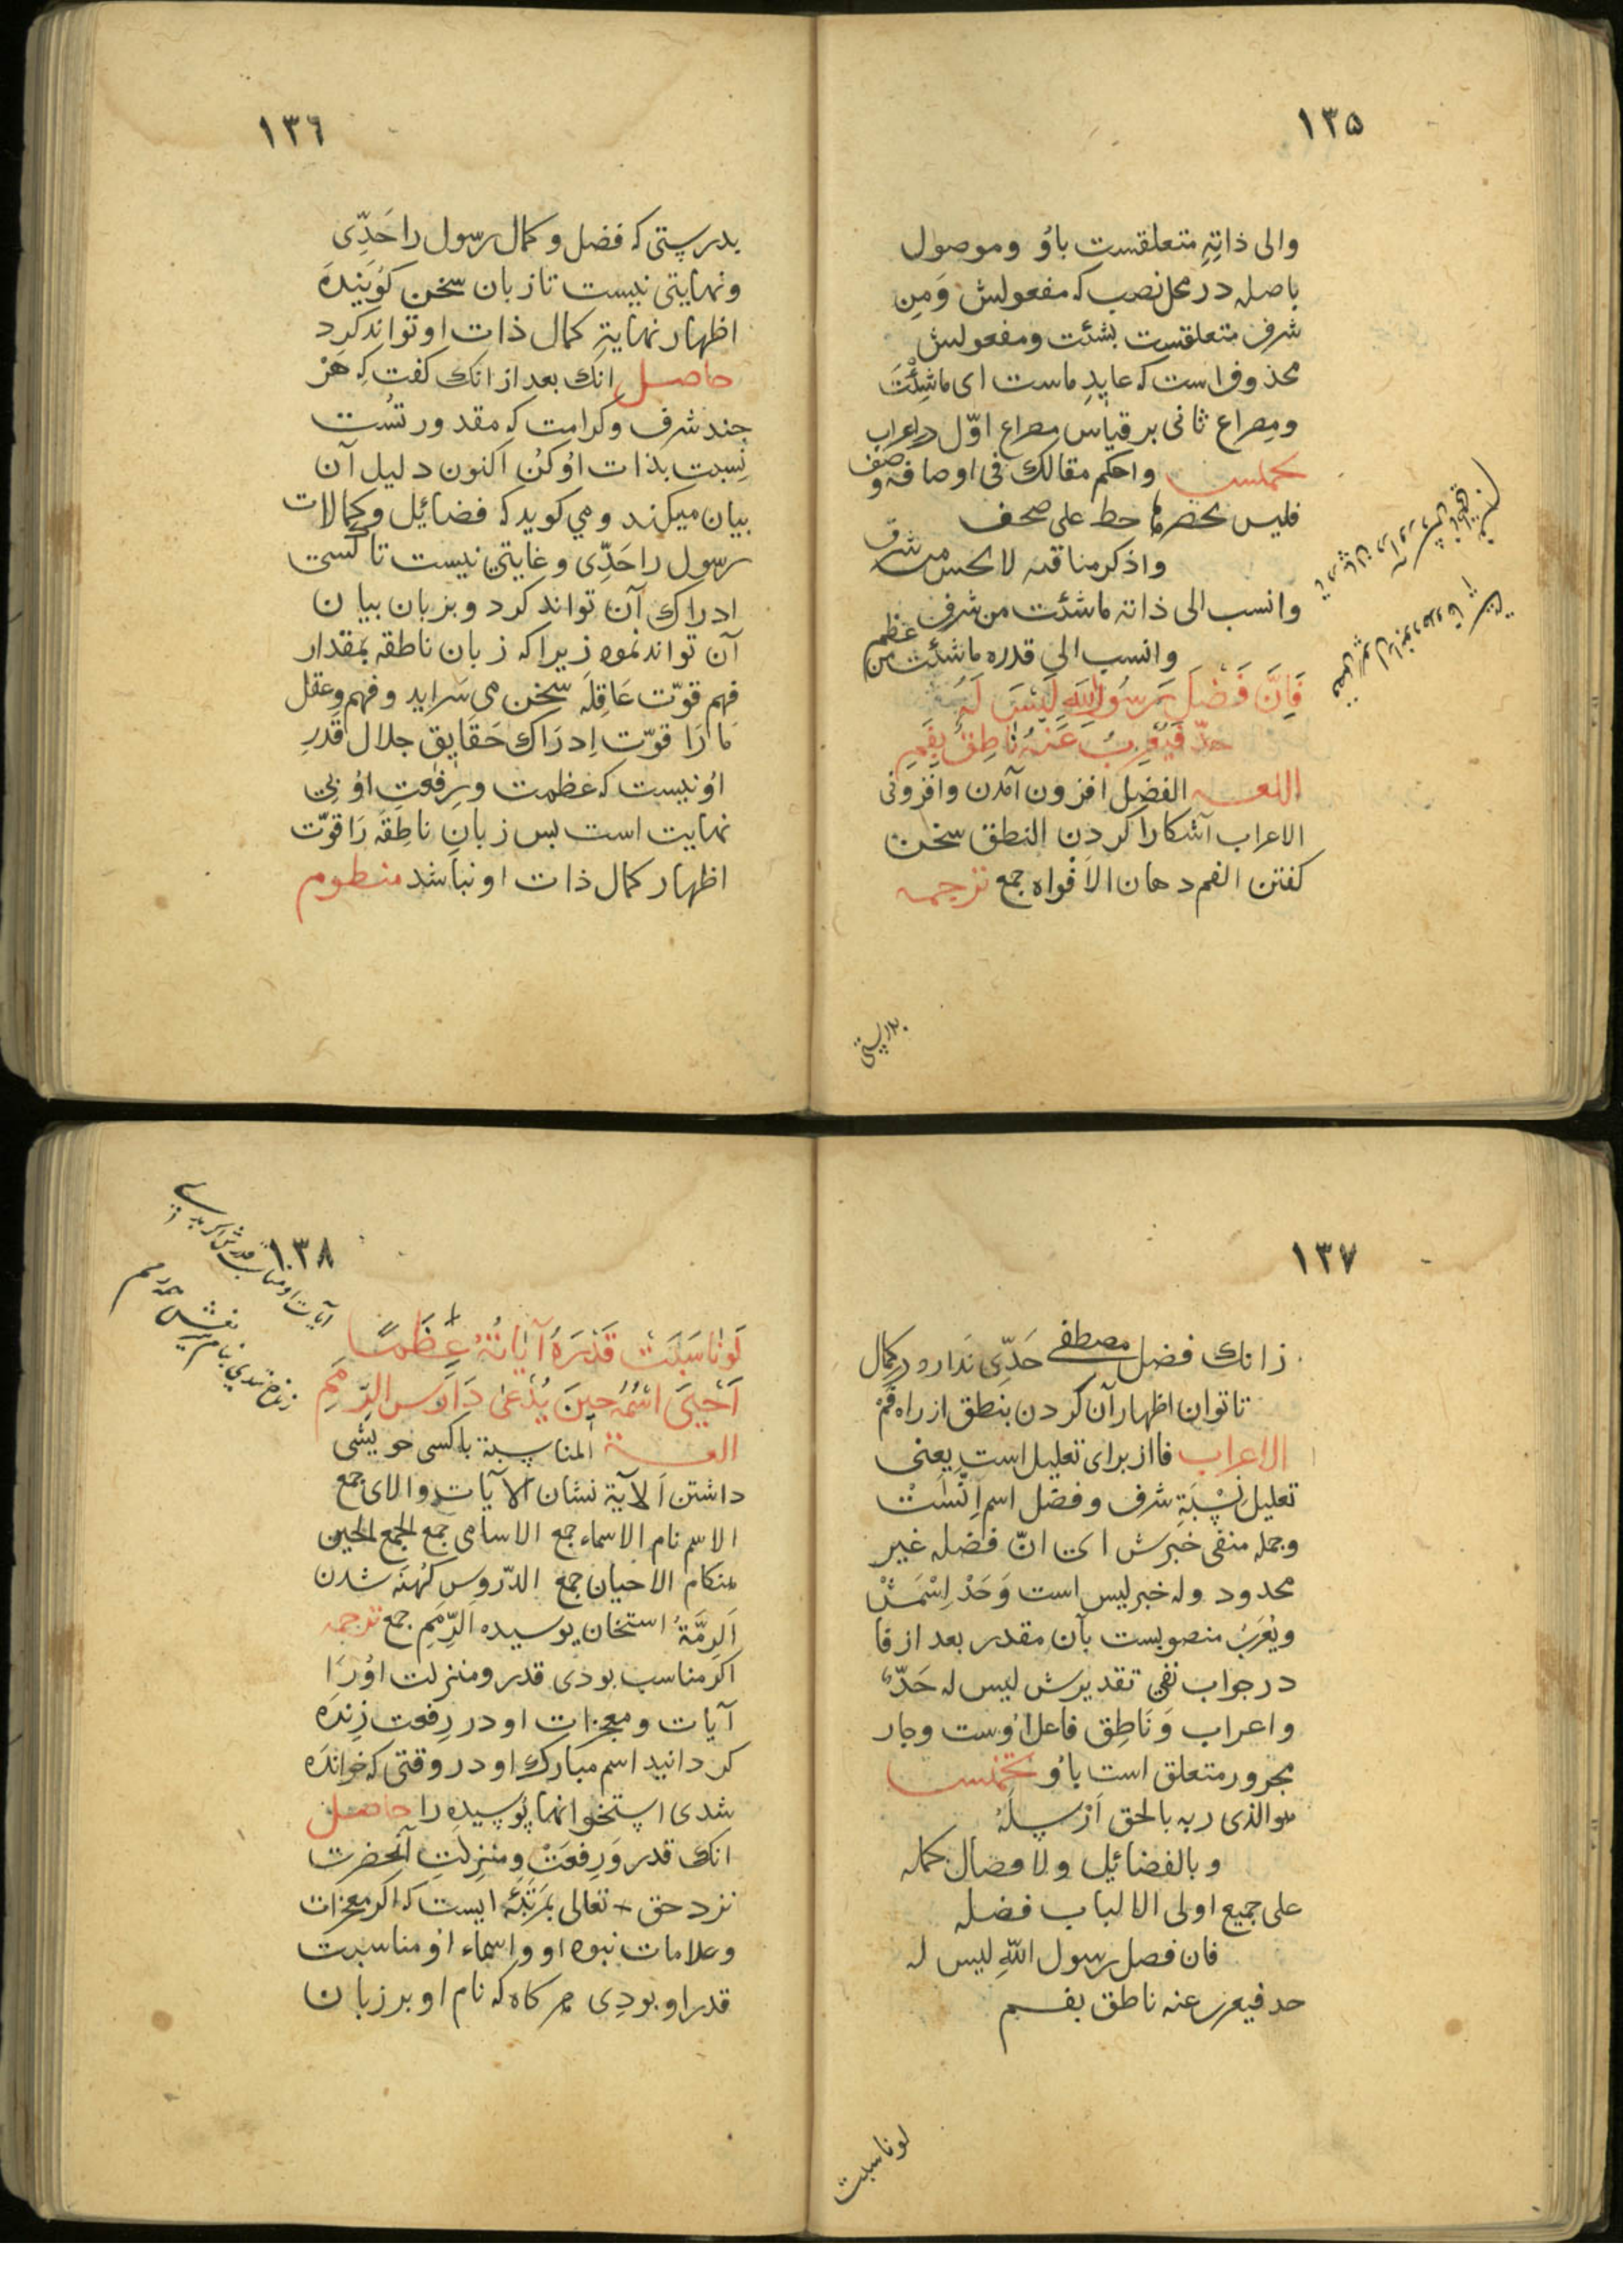 ١٣۵
والی ذاتِهِ متعلقست باوُ وموصول
باصله در محل نصب که مفعولش وَمِن
شرف متعلقست بشئت ومفعولش
محذوف است که عایدِ ماست ای ماشِئْتَ
ومصراع ثانی بر قیاس مصراع اوّل در اعراب
تخمیس واحکم مقالک فی اوصافه وصف
فلیس یحصرها حط علی صحف
واذکر مناقبه لا تخس من شرف
وانسب الی ذاته ماشئت من شرف
وانسب الی قدره ماشئت من عظم
فَاِنَّ فَضْلَ رَسُولِ اللّٰهِ لَیْسَ لَهُ
حدٌّ فَیُعْرِبُ عَنْهُ نَاطِقٌ بِفَمِ
اللغه الفضل افزون آمدن وافزونی
الاعراب آشکارا کردن النطق سخن
کفتن الفم دهان الاَفْواه جمع ترجمه
بدرستی
١٣٦
بدرستی که فضل و کمال رسول را حَدِّی
ونهایتی نیست تا زبان سخن کوُینِدَه
اظهار نهایةِ کمال ذات او تواند کرد
حاصل انک بعد از انک کفت که هَرْ
چند شرف وکرامت که مقدور تُست
نِسبت بذات اوُ کنُ اکنون دلیل آن
بیان میکند ومی کوید که فضائیل وکمالات
رسول را حَدِّی وغایتی نیست تا کسی
ادراک آن تواند کرد وبزبان بیان
آن تواند نمود زیرا که زبان ناطقه بمقدار
فهم قوّت عَاقِلَه سخن می سَراید وفهم وعقل
مَا رَا قوّت اِدرَاک حَقَایِق جلال قَدرِ
اوُ نیست که عظمت ورِفعتِ اوُ بی
نهایت است بس زبانِ ناطِقَه رَا قوّت
اظهار کمال ذات او نباشد منظوم
١٣٧
زانک فضل مصطفی حَدِّی نَدارد در کمال
تا توان اظهار آن کردن بنطق از راه فَمْ
الاعراب فا از برای تعلیل است یعنی
تعلیل نِسْبَةِ شرف وفضل اسم اِنَّسْتْ
وجمله منفی خبَرش ای انّ فضله غیر
محدود وله خبر لیس است وَحَدْ اِسْمَشْ
ویُعْرَبَ منصوبست بآن مقدر بعد از فا
در جواب نفی تقدیرش لیس له حَدٌّ
واعراب وَنَاطِق فاعل اوُست وجار
مجرور متعلق است باوُ تخمیس
هوالذی ربه بالحق اَرْسَلَهُ
وبالفضائیل والافضال کمله
علی جمیع اولی الالباب فضله
فان فضل رسول اللّٰهِ لیس له
حد فیعرب عنه ناطق بفم
لوناسبت
١٣٨
لَوْ نَاسَبَتْ قَدْرَهُ آیَاتُهُ عِظَمًا
اَحْیَی اسْمُهُ حِینَ یُدْعٰی دَارِسَ الرِّمَمِ
اللغة المناسبة باکسی خویشی
داشتن اَلآیة نشان الآیات والای جمع
الاسم نام الاسماء جمع الاسامی جمع الجمع الحین
هنکام الاحیان جمع الدّروس کُهنَه شدن
اَلرِمَّةُ استخان پوسیده اَلرِّمَمِ جمع ترجمه
اکر مناسب بودی قدر ومنزلت اوُ رَا
آیات ومعجزات او در رِفعت زِندَه
کردانید اسم مبارک او در وقتی که خوانَده
شدی استخوانها پُوسیدِه را حاصل
انک قدر وَرِفعَتْ ومنزِلَتِ آنحضرت
نزد حق تعالی بمرَتبَهٔ ایست که اکر معجزات
وعلامات نبوه او واسماء اوُ مناسبت
قدر او بودی هرکاه که نام او بر زبان